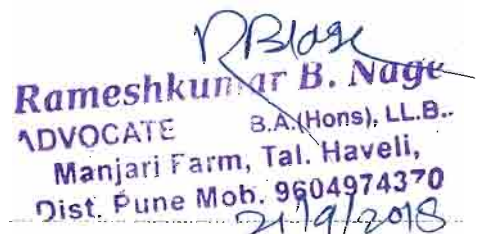 Rameshkumar B. Nage
ADVOCATE B.A.(Hons), LL.B..
Manjari Farm, Tal. Haveli,
Dist. Pune Mob. 9604974370
21/9/2018